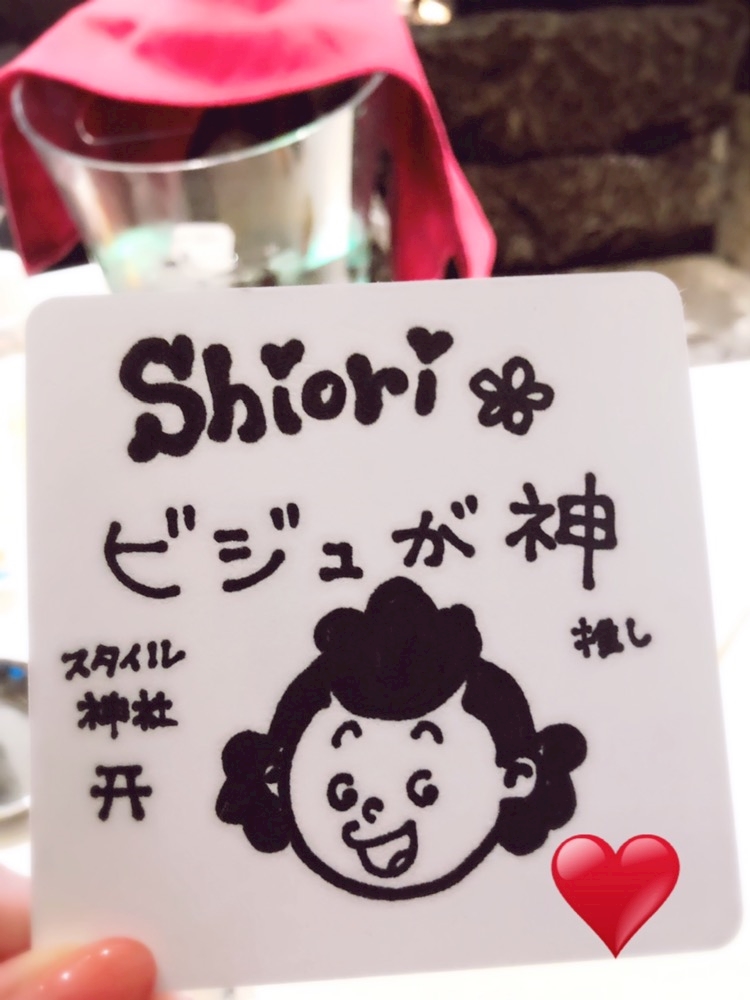 Shiori
ビジュが神
推し
スタイル
神社